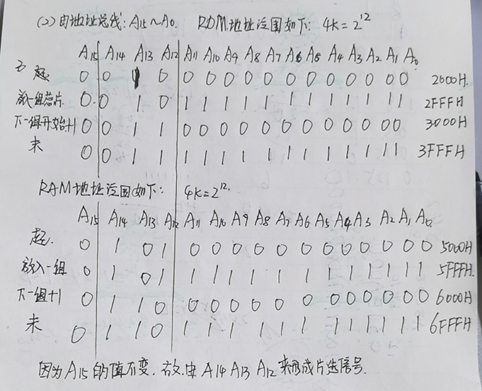 (2) 由地址总线: A15~A0. ROM地址范围如下: 4K=2^12
A15 A14 A13 A12 A11 A10 A9 A8 A7 A6 A5 A4 A3 A2 A1 A0
起 0 0 1 0 0 0 0 0 0 0 0 0 0 0 0 0 2000H
放一组芯片 0 0 1 0 1 1 1 1 1 1 1 1 1 1 1 1 2FFFH
下一组开始+1 0 0 1 1 0 0 0 0 0 0 0 0 0 0 0 0 3000H
末 0 0 1 1 1 1 1 1 1 1 1 1 1 1 1 1 3FFFH
RAM地址范围如下: 4K=2^12.
A15 A14 A13 A12 A11 A10 A9 A8 A7 A6 A5 A4 A3 A2 A1 A0
起. 0 1 0 1 0 0 0 0 0 0 0 0 0 0 0 0 5000H
放入一组 0 1 0 1 1 1 1 1 1 1 1 1 1 1 1 1 5FFFH
下一组+1 0 1 1 0 0 0 0 0 0 0 0 0 0 0 0 0 6000H
末 0 1 1 0 1 1 1 1 1 1 1 1 1 1 1 1 6FFFH
因为A15的值不变. 故由A14 A13 A12来形成片选信号.